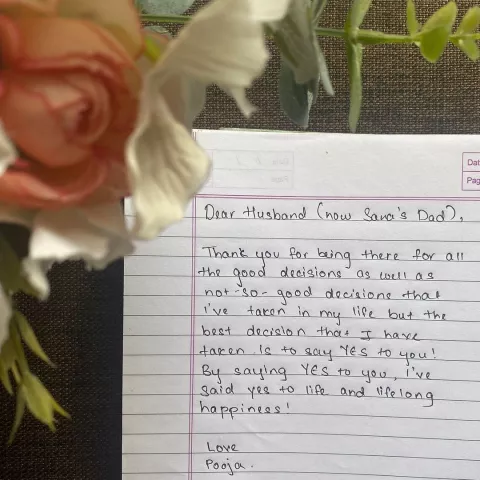 Dat
Pag
Dear Husband (now Sara's Dad),
Thank you for being there for all
the good decisions as well as
not-so-good decisions that
I've taken in my life but the
best decision that I have
taken is to say YES to you!
By saying YES to you, I've
said yes to life and lifelong
happiness!
Love
Pooja.